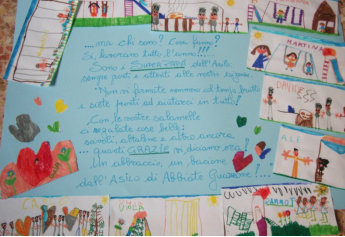 ....ma chi sono? Cosa fanno?
Si, lavorano tutto l'anno!!!
Sono i SUPERNONNI dell'Asilo:
sempre pronti e attenti alle nostre esigenze.
"Non si fermate nemmeno col tempo brutto
e siete pronti ad aiutarci in tutto!
Con le vostre salamelle
ci regalate cose belle:
tavoli, altalene e altro ancora
.... quanti GRAZIE vi diciamo ora!
Un abbraccio, un bacione
dall'Asilo di Abbiate Guazzone!....
MARTINA
DAVIDE
ALI
VIOLA